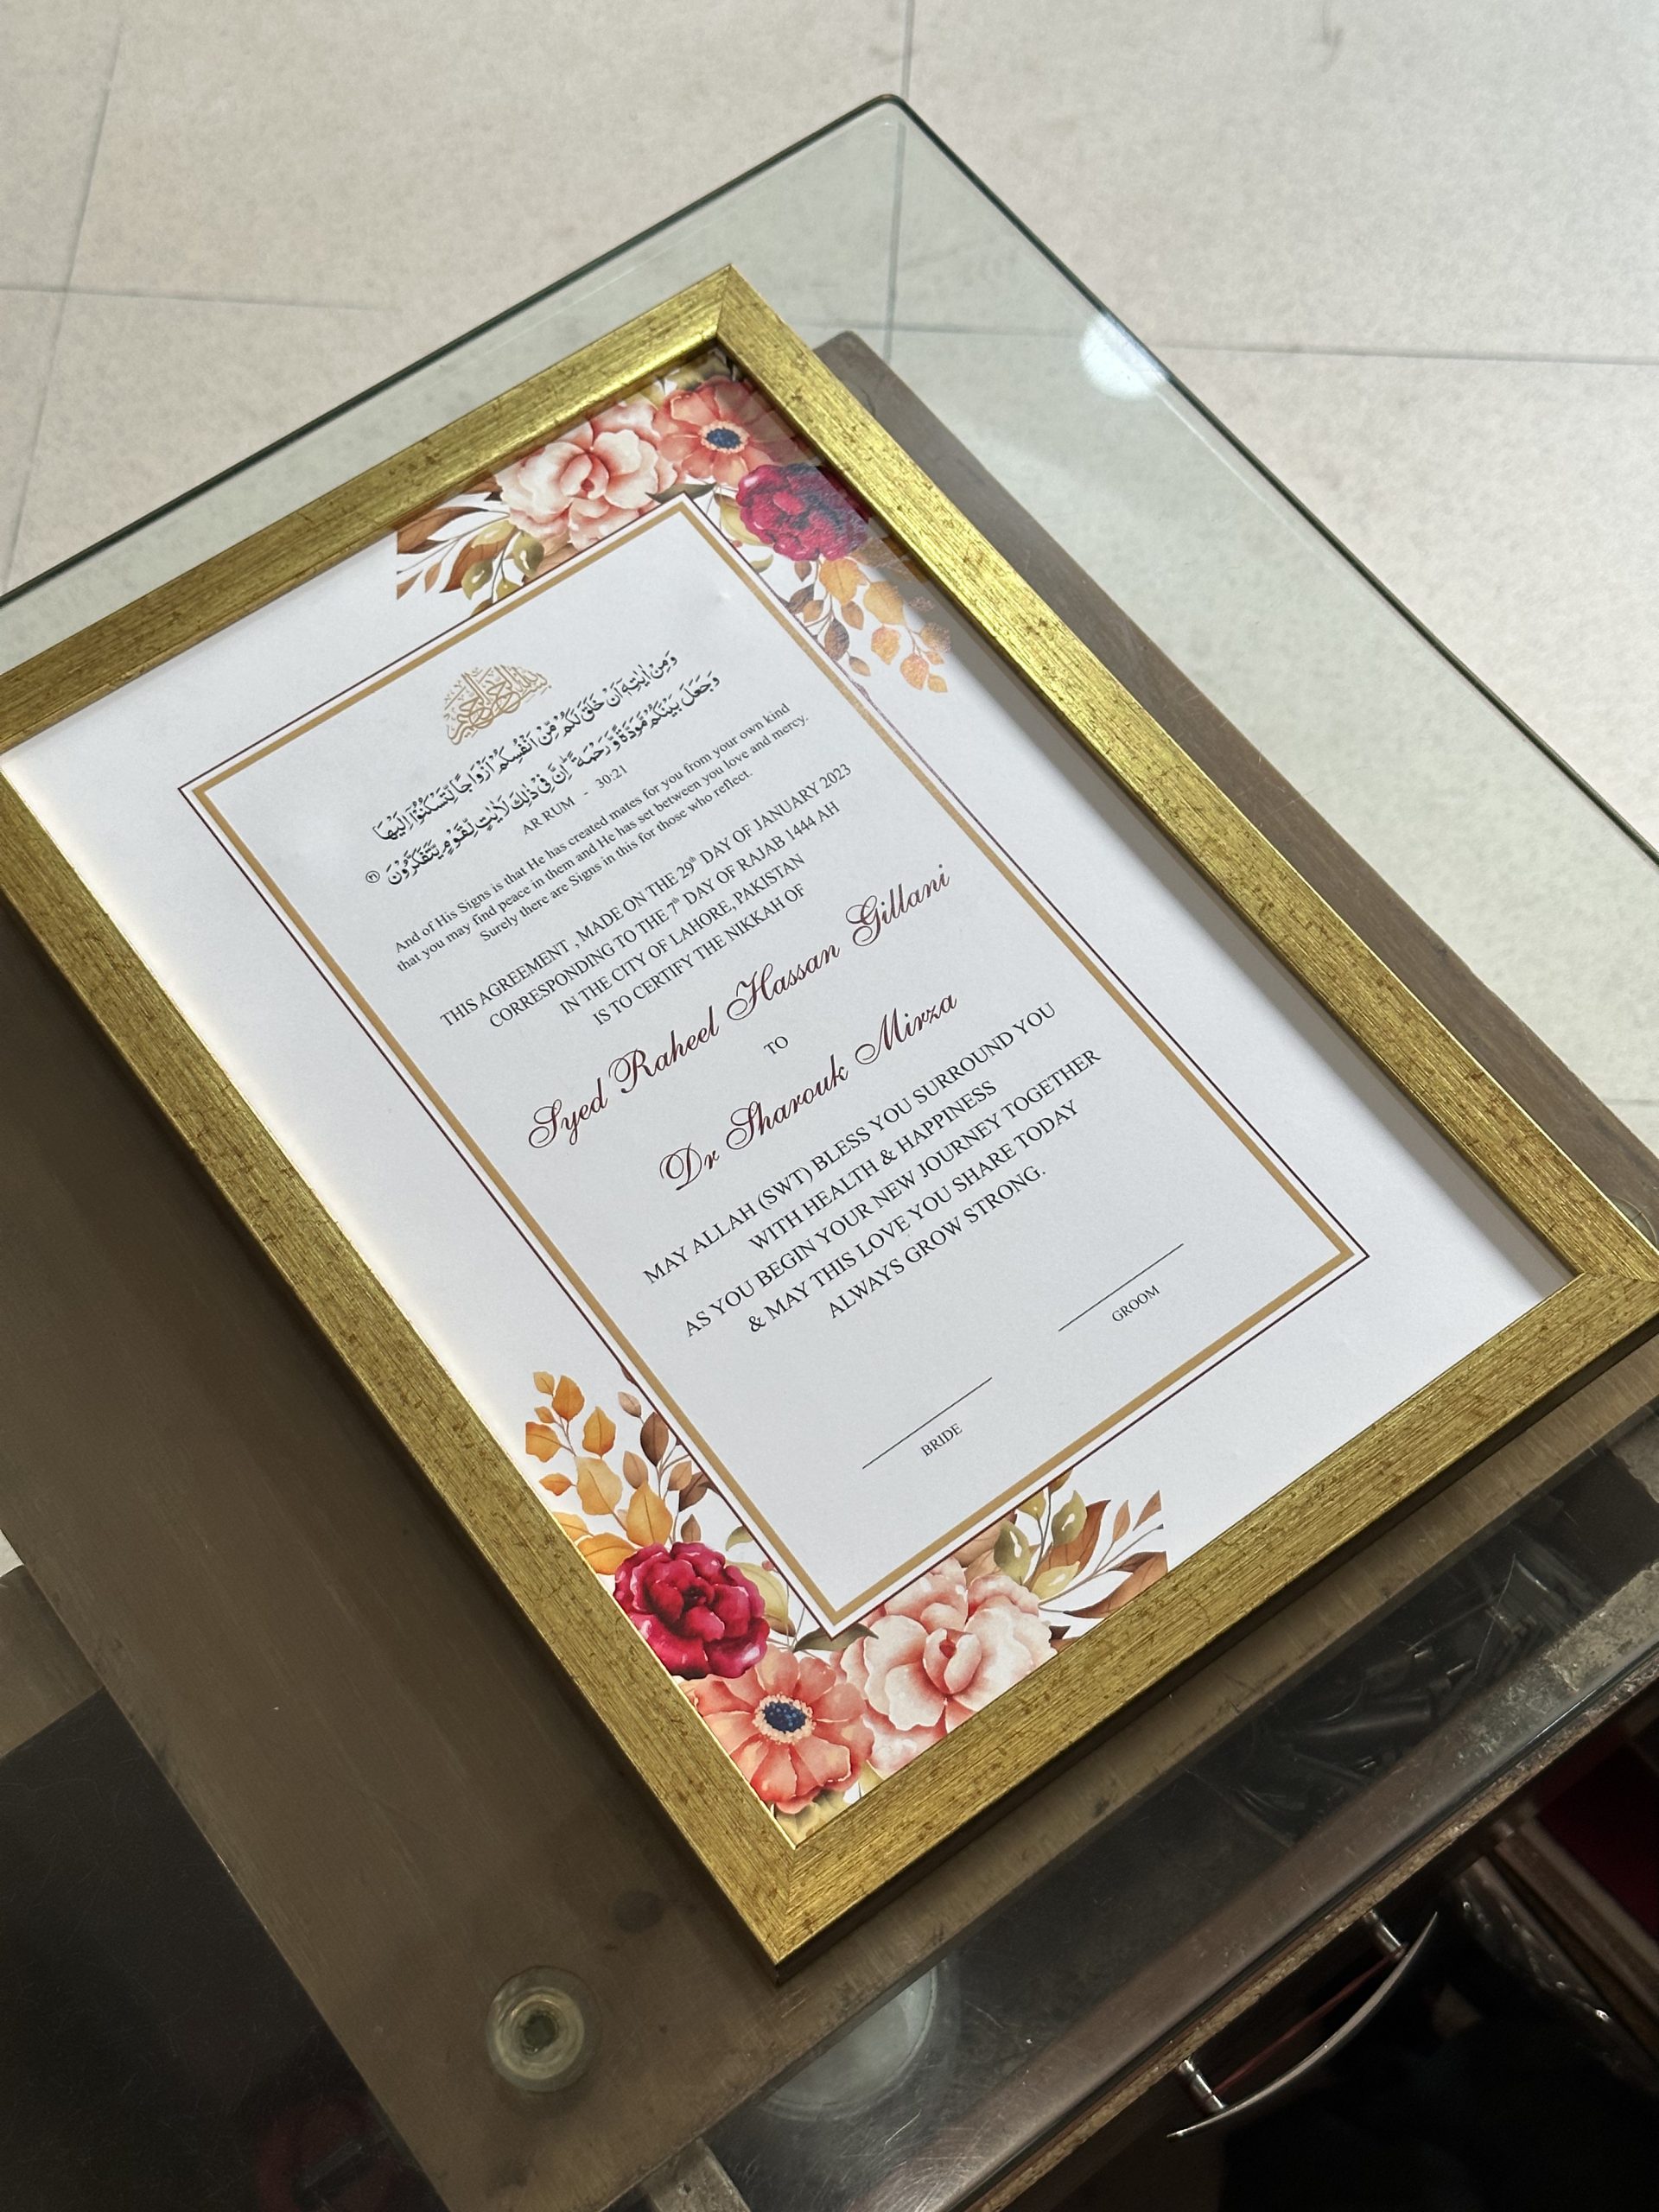 بسم الله الرحمن الرحيم
وَمِنْ اٰيٰتِهٖٓ اَنْ خَلَقَ لَكُمْ مِّنْ اَنْفُسِكُمْ اَزْوَاجًا لِّتَسْكُنُوْٓا اِلَيْهَا
وَجَعَلَ بَيْنَكُمْ مَّوَدَّةً وَّرَحْمَةً ؕ اِنَّ فِيْ ذٰلِكَ لَاٰيٰتٍ لِّقَوْمٍ يَّتَفَكَّرُوْنَ ﴿٢١﴾
AR RUM - 30:21
And of His Signs is that He has created mates for you from your own kind
that you may find peace in them and He has set between you love and mercy.
Surely there are Signs in this for those who reflect.
THIS AGREEMENT , MADE ON THE 29th DAY OF JANUARY 2023
CORRESPONDING TO THE 7th DAY OF RAJAB 1444 AH
IN THE CITY OF LAHORE, PAKISTAN
IS TO CERTIFY THE NIKKAH OF
Syed Raheel Hassan Gillani
TO
Dr Sharouk Mirza
MAY ALLAH (SWT) BLESS YOU SURROUND YOU
WITH HEALTH & HAPPINESS
AS YOU BEGIN YOUR NEW JOURNEY TOGETHER
& MAY THIS LOVE YOU SHARE TODAY
ALWAYS GROW STRONG.
BRIDE
GROOM